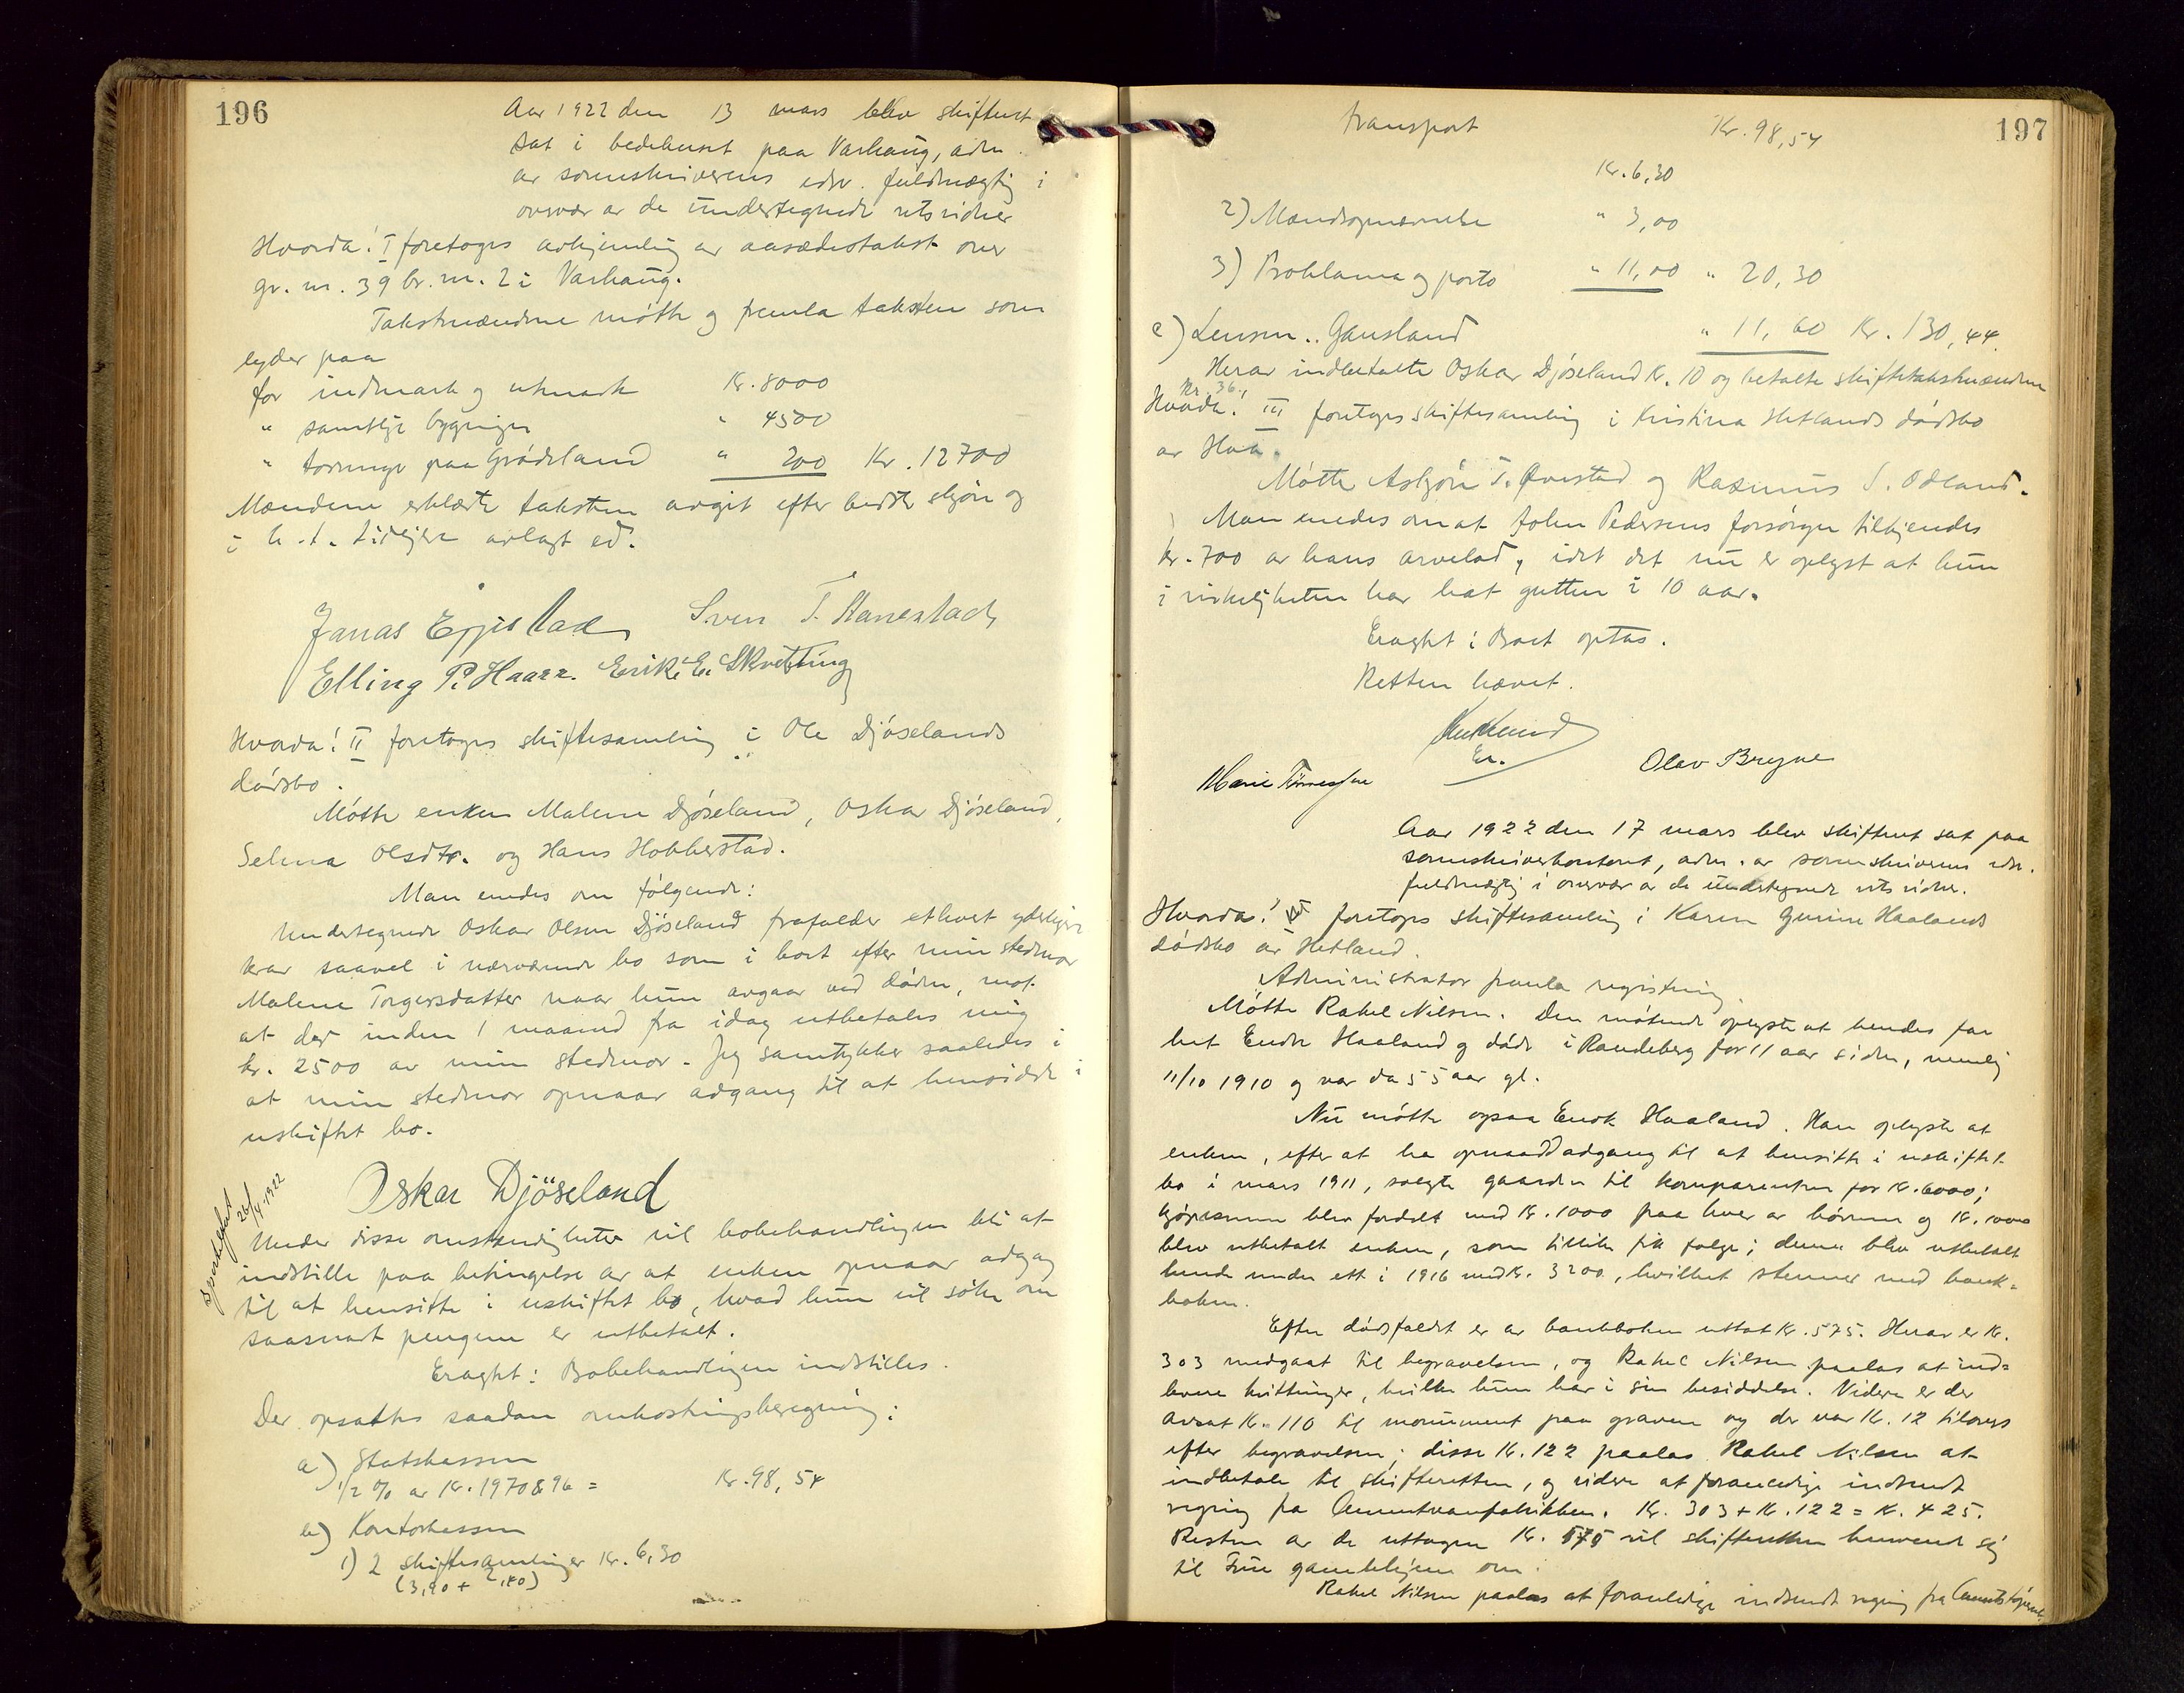 196
Aar 1922 den 13 mars blev skifteret
sat i bedehuset paa Varhaug, adm.
av sorenskriverens edsv. fuldmægtig i
overvær av de undertegnede retsvidner
Hvorda! I foretoges avhjemling av aasædestakst over
gr. nr. 39 br. nr. 2 i Varhaug.
Takstmændene møtte og fremla taksten som
lyder paa
for indmark og utmark Kr. 8000
" samtlige bygninger " 4500
" torvinge paa Grødeland " 200 Kr. 12700
Mændene erklærte taksten avgit efter bedste skjøn og
i h. t. tidligere avlagt ed.
Jonas Eggebø Sven T. Stavestad
Elling P. Haarr. Erik E. Skretting
Hvorda! II foretoges skiftesamling i Ole Djøselands
dødsbo.
Møtte enken Malene Djøseland, Oskar Djøseland,
Selma Olsdtr. og Hans Hobberstad.
Man enedes om følgende:
Undertegnede Oskar Olsen Djøseland frafalder ethvert yderligere
krav saavel i nærværende bo som i boet efter min stedmor
Malene Torgersdatter naar hun avgaar ved døden, mot
at der inden 1 maaned fra idag utbetales mig
kr. 2500 av min stedmor. Jeg samtykker saaledes i
at min stedmor opnaar adgang til at hensidde i
uskiftet bo.
Oskar Djöseland
26/4 1922
Under disse omstendigheter vil bobehandlingen bli at
indstille paa betingelse av at enken opnaar adgang
til at hensitte i uskiftet bo, hvad hun vil søke om
saasnart pengene er utbetalt.
Eragtet: Bobehandlingen indstilles.
Der opsattes saadan omkostningsberegning:
a) Statskassen
1/2 % av Kr. 19708,96 = Kr. 98,54
b) Kontorkassen
1) 2 skiftesamlinger Kr. 6,30
(3,90 + 2,40)
197
Transport Kr. 98,54
Kr. 6,30
2) Mændsopnævnelse " 3,00
3) Proklama og porto " 11,00 " 20,30
c) Lensm.. Gausland " 11,60 Kr. 130,44.
Herav indbetalte Oskar Djøseland Kr. 10 og betalte skiftetakstmændene
Kr. 36,
Hvorda! III foretoges skiftesamling i Kristina Hetlands dødsbo
av Haa.
Møtte Asbjørn T. Ovestad og Rasmus S. Odland.
Man enedes om at John Pedersens forsørger tilkjendes
kr. 700 av hans arvelod, idet det nu er oplyst at hun
i virkeligheten har hat gutten i 10 aar.
Eragtet: Boet optas.
Retten hævet.
Er.
Marie Tønnessen Olav Bryne
Aar 1922 den 17 mars blev skifteret sat paa
sorenskriverkontoret, adm. av sorenskriverens edsv.
fuldmægtig i overvær av de undertegnede retsvidner.
Hvorda! foretoges skiftesamling i Karen Gurine Haalands
dødsbo av Hetland.
Administrator fremla registrering.
Møtte Rakel Nilsen. Den møtende oplyste at hendes far
het Endre Haaland og døde i Randeberg for 11 aar siden, nemlig
11/10 1910 og var da 55 aar gl.
Nu møtte ogsaa Endre Haaland. Han oplyste at
enken, efter at ha opnaadd adgang til at hensitte i uskiftet
bo i mars 1911, solgte gaarden til komparenten for Kr. 6000;
kjøpesummen blev fordelt med Kr. 1000 paa hver av børnene og Kr. 1000
blev utbetalt enken, som tillike fik følge; denne blev utbetalt
hende under ett i 1916 med Kr. 3200, hvilket stemmer med bank=
boken.
Efter dødsfaldet er av bankboken uttat Kr. 575. Herav er Kr.
303 medgaat til begravelsen, og Rakel Nilsen paalas at ind=
levere kvitteringer, hvilke hun har i sin besiddelse. Videre er der
avsat Kr. 110 til monument paa graven og der var Kr. 12 tilovers
efter begravelsen; disse Kr. 122 paalas Rakel Nilsen at
indbetale til skifteretten, og videre at foranledige indsendt
regning fra Cementvarefabrikken. Kr. 303 + Kr. 122 = Kr. 425.
Resten av de uttagne Kr. 575 vil skifteretten henvende sig
til Fru gamlehjem om.
Rakel Nilsen paalas at foranledige indsendt regning fra